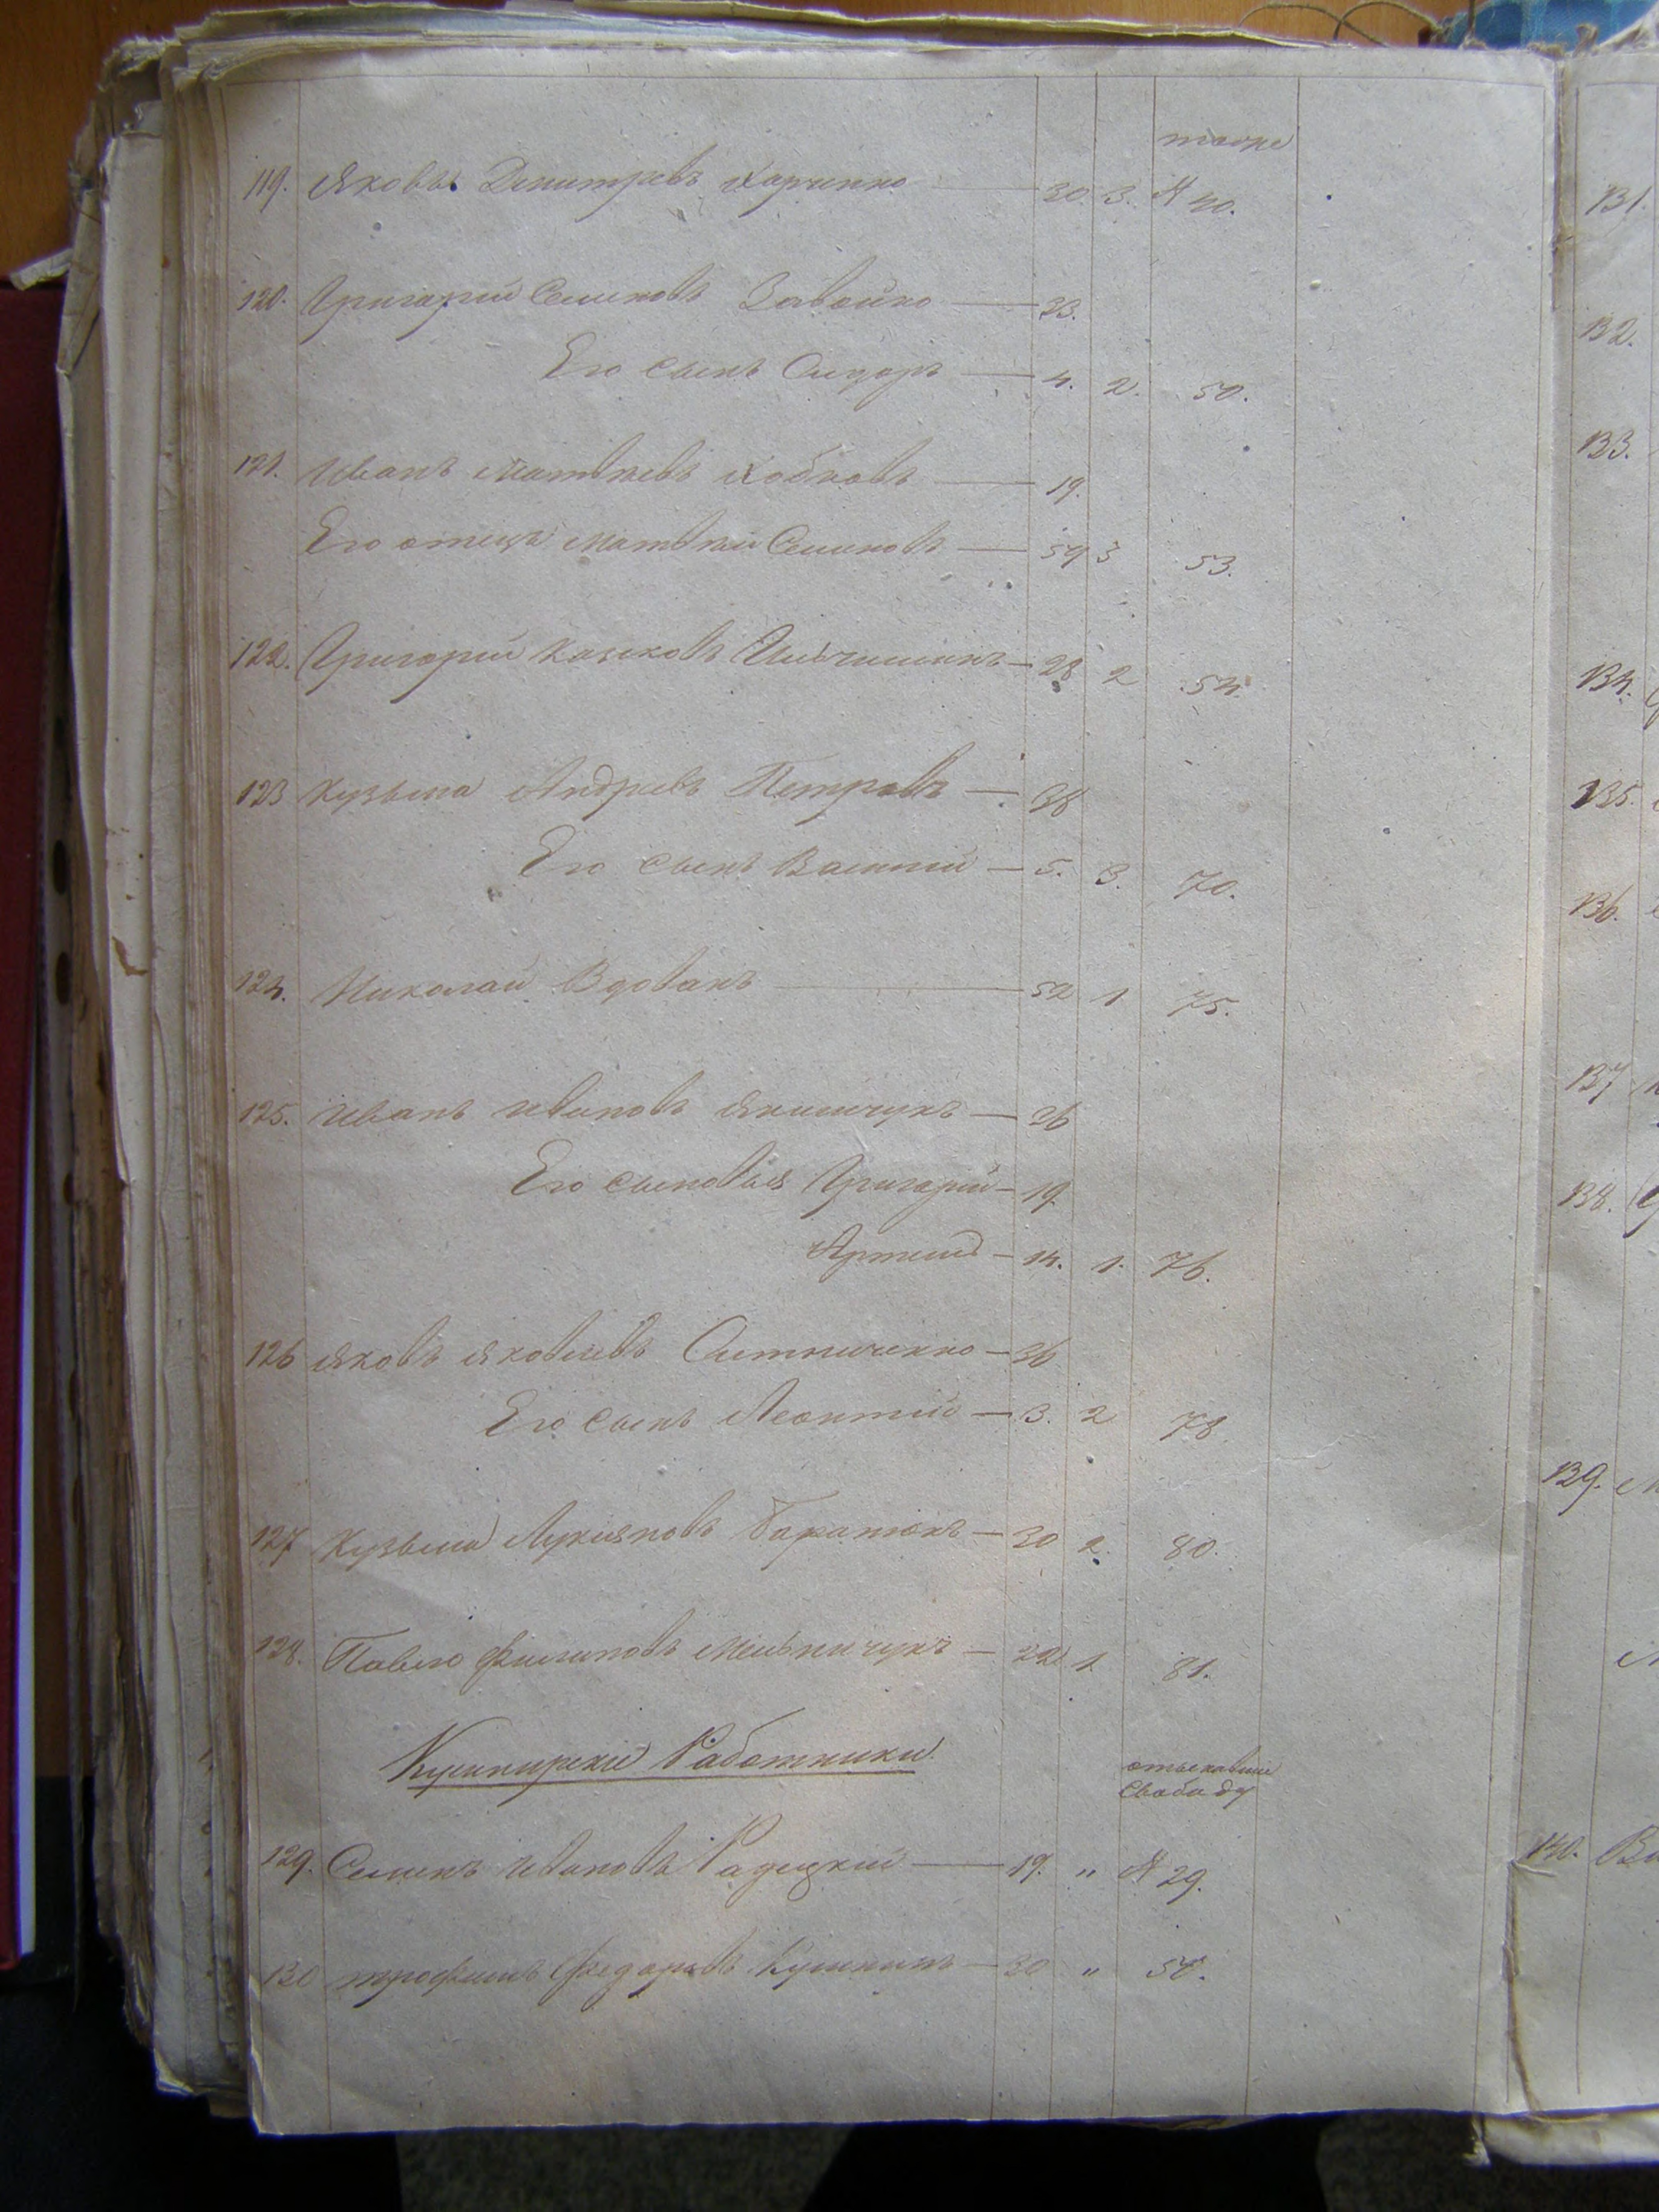 тоже
119. Яковъ Дмитревъ Харченко — 30. 3. № 40.
120. Григорій Семеновъ Завойко — 33.
Его сынъ Сидоръ — 4. 2. 50.
121. Иванъ Матвѣевъ Кобковъ — 19.
Его отецъ Матвѣй Семеновъ — 59 3 53.
122. Григорій — 28 2 54.
123 Кузьма Андреевъ Петровъ — 38
Его сынъ Василій — 5. 3. 70.
124. Николай Вдовакъ — 52 1 75.
125. Иванъ Ивановъ Якимчукъ — 26
Его сыновья Григорій — 19
Артемъ — 14. 1. 76.
126 Яковъ Яковлевъ Ситниченко — 36
Его сынъ Леонтій — 3. 2 78
127 Кузьма Лукяновъ Баранюкъ — 30 2. 80.
128. Павло Филиповъ Мельничукъ — 22 1. 81.
Работники
отыскавшіе
свободу
129. Семенъ Ивановъ Радецкій — 19. " № 29.
130 Трофимъ Федоровъ — 30 " 50.
131.
132.
133.
134.
135.
136.
137
138.
139.
140.